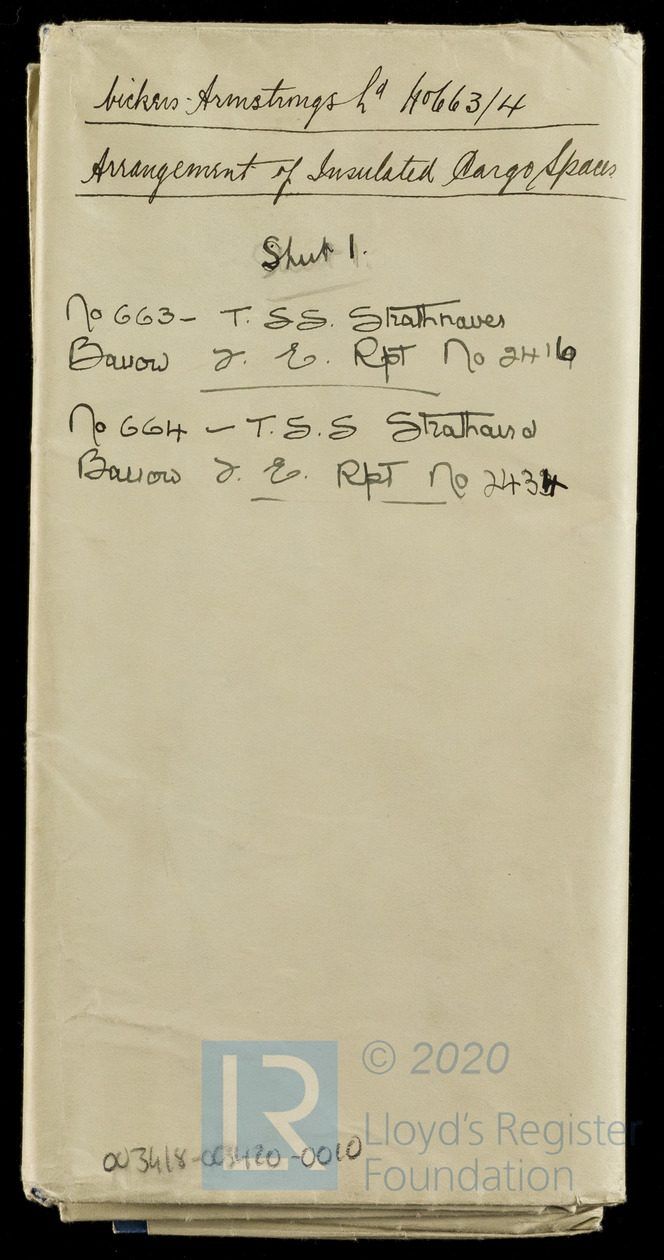 Vickers-Armstrongs Ld No 663/4
Arrangement of Insulated Cargo Spaces
Sheet 1.
No 663 - T. S S. Strathnaver
Barrow F. E. Rpt No 2416
No 664 - T. S. S Strathaird
Barrow F. E. Rpt No 2434
© 2020
LR
Lloyd's Register
Foundation
003418-003420-0010